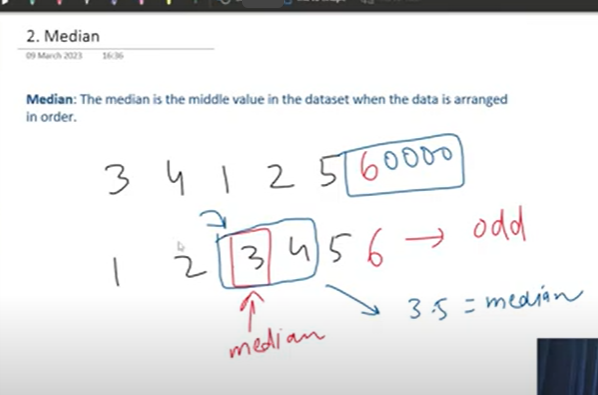 2. Median
09 March 2023 16:36
Median: The median is the middle value in the dataset when the data is arranged
in order.
3 4 1 2 5 60000
1 2 3 4 5 6 → odd
3.5 = median
median